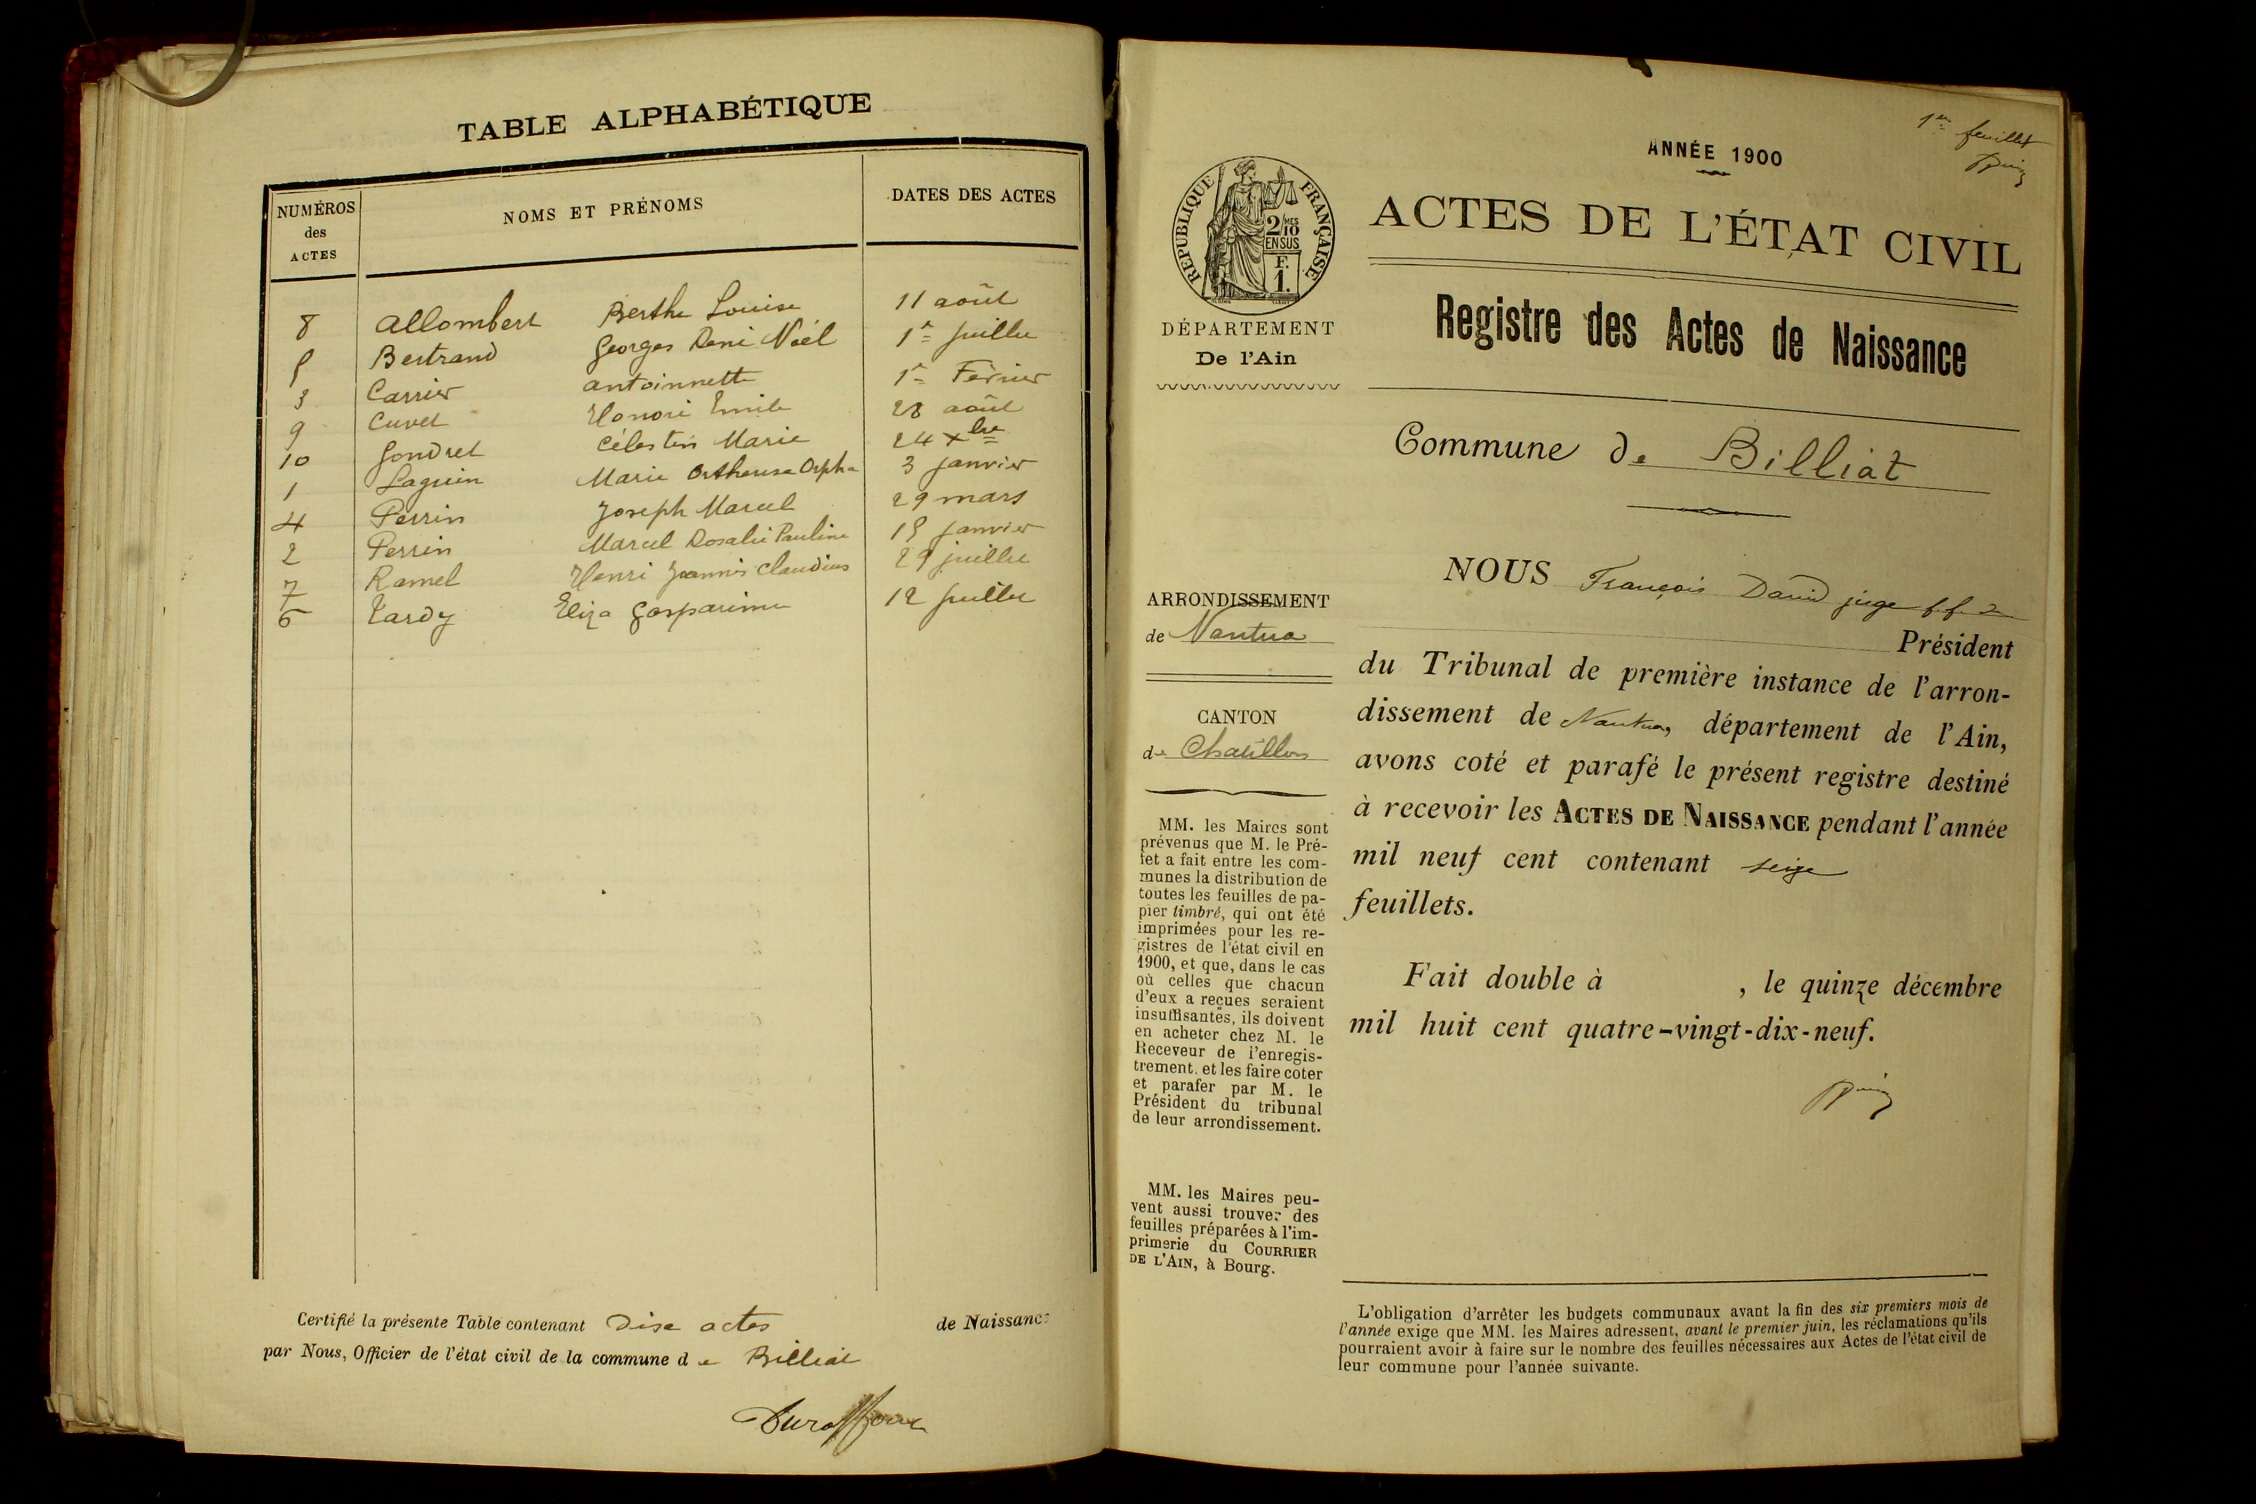 TABLE ALPHABÉTIQUE
NUMÉROS des ACTES
NOMS ET PRÉNOMS
DATES DES ACTES
8 Allombert Berthe Louise 11 août
5 Bertrand Georges René Noël 1er juillet
3 Carrier Antoinnette 1er Février
9 Cuvet Honoré Emile 28 août
10 Gondret Célestin Marie 24 xbre
1 Laguin Marie Ortheuse Orpha 3 janvier
4 Perrin Joseph Marcel 29 mars
2 Perrin Marcel Rosalie Pauline 15 janvier
7 Ramel Henri Joannis Claudius 29 juillet
6 Tardy Eliza Gasparine 12 juillet
Certifié la présente Table contenant Dix actes de Naissance
par Nous, Officier de l'état civil de la commune de Billiat
1er feuillet
ANNÉE 1900
RÉPUBLIQUE FRANÇAISE
2/10 MES
EN SUS
F.
1.
DÉPARTEMENT
De l'Ain
ACTES DE L'ÉTAT CIVIL
Registre des Actes de Naissance
Commune de Billiat
ARRONDISSEMENT
de Nantua
CANTON
de Chatillon
MM. les Maires sont
prévenus que M. le Pré-
fet a fait entre les com-
munes la distribution de
toutes les feuilles de pa-
pier timbré, qui ont été
imprimées pour les re-
gistres de l'état civil en
1900, et que, dans le cas
où celles que chacun
d'eux a reçues seraient
insuffisantes, ils doivent
en acheter chez M. le
Receveur de l'enregis-
trement. et les faire coter
et parafer par M. le
Président du tribunal
de leur arrondissement.
MM. les Maires peu-
vent aussi trouver des
feuilles préparées à l'im-
primerie du COURRIER
DE L'AIN, à Bourg.
NOUS François David juge f.f. de
Président
du Tribunal de première instance de l'arron-
dissement de Nantua, département de l'Ain,
avons coté et parafé le présent registre destiné
à recevoir les ACTES DE NAISSANCE pendant l'année
mil neuf cent contenant seize
feuillets.
Fait double à , le quinze décembre
mil huit cent quatre-vingt-dix-neuf.
L'obligation d'arrêter les budgets communaux avant la fin des six premiers mois de
l'année exige que MM. les Maires adressent, avant le premier juin, les réclamations qu'ils
pourraient avoir à faire sur le nombre des feuilles nécessaires aux Actes de l'état civil de
leur commune pour l'année suivante.